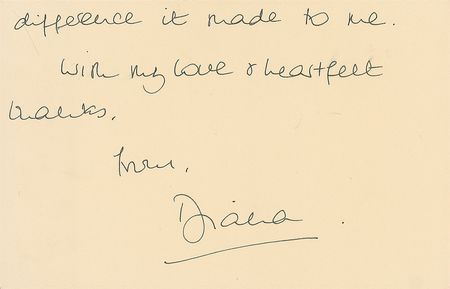 difference it made to me.
With my love & heartfelt
thanks,
from,
Diana.